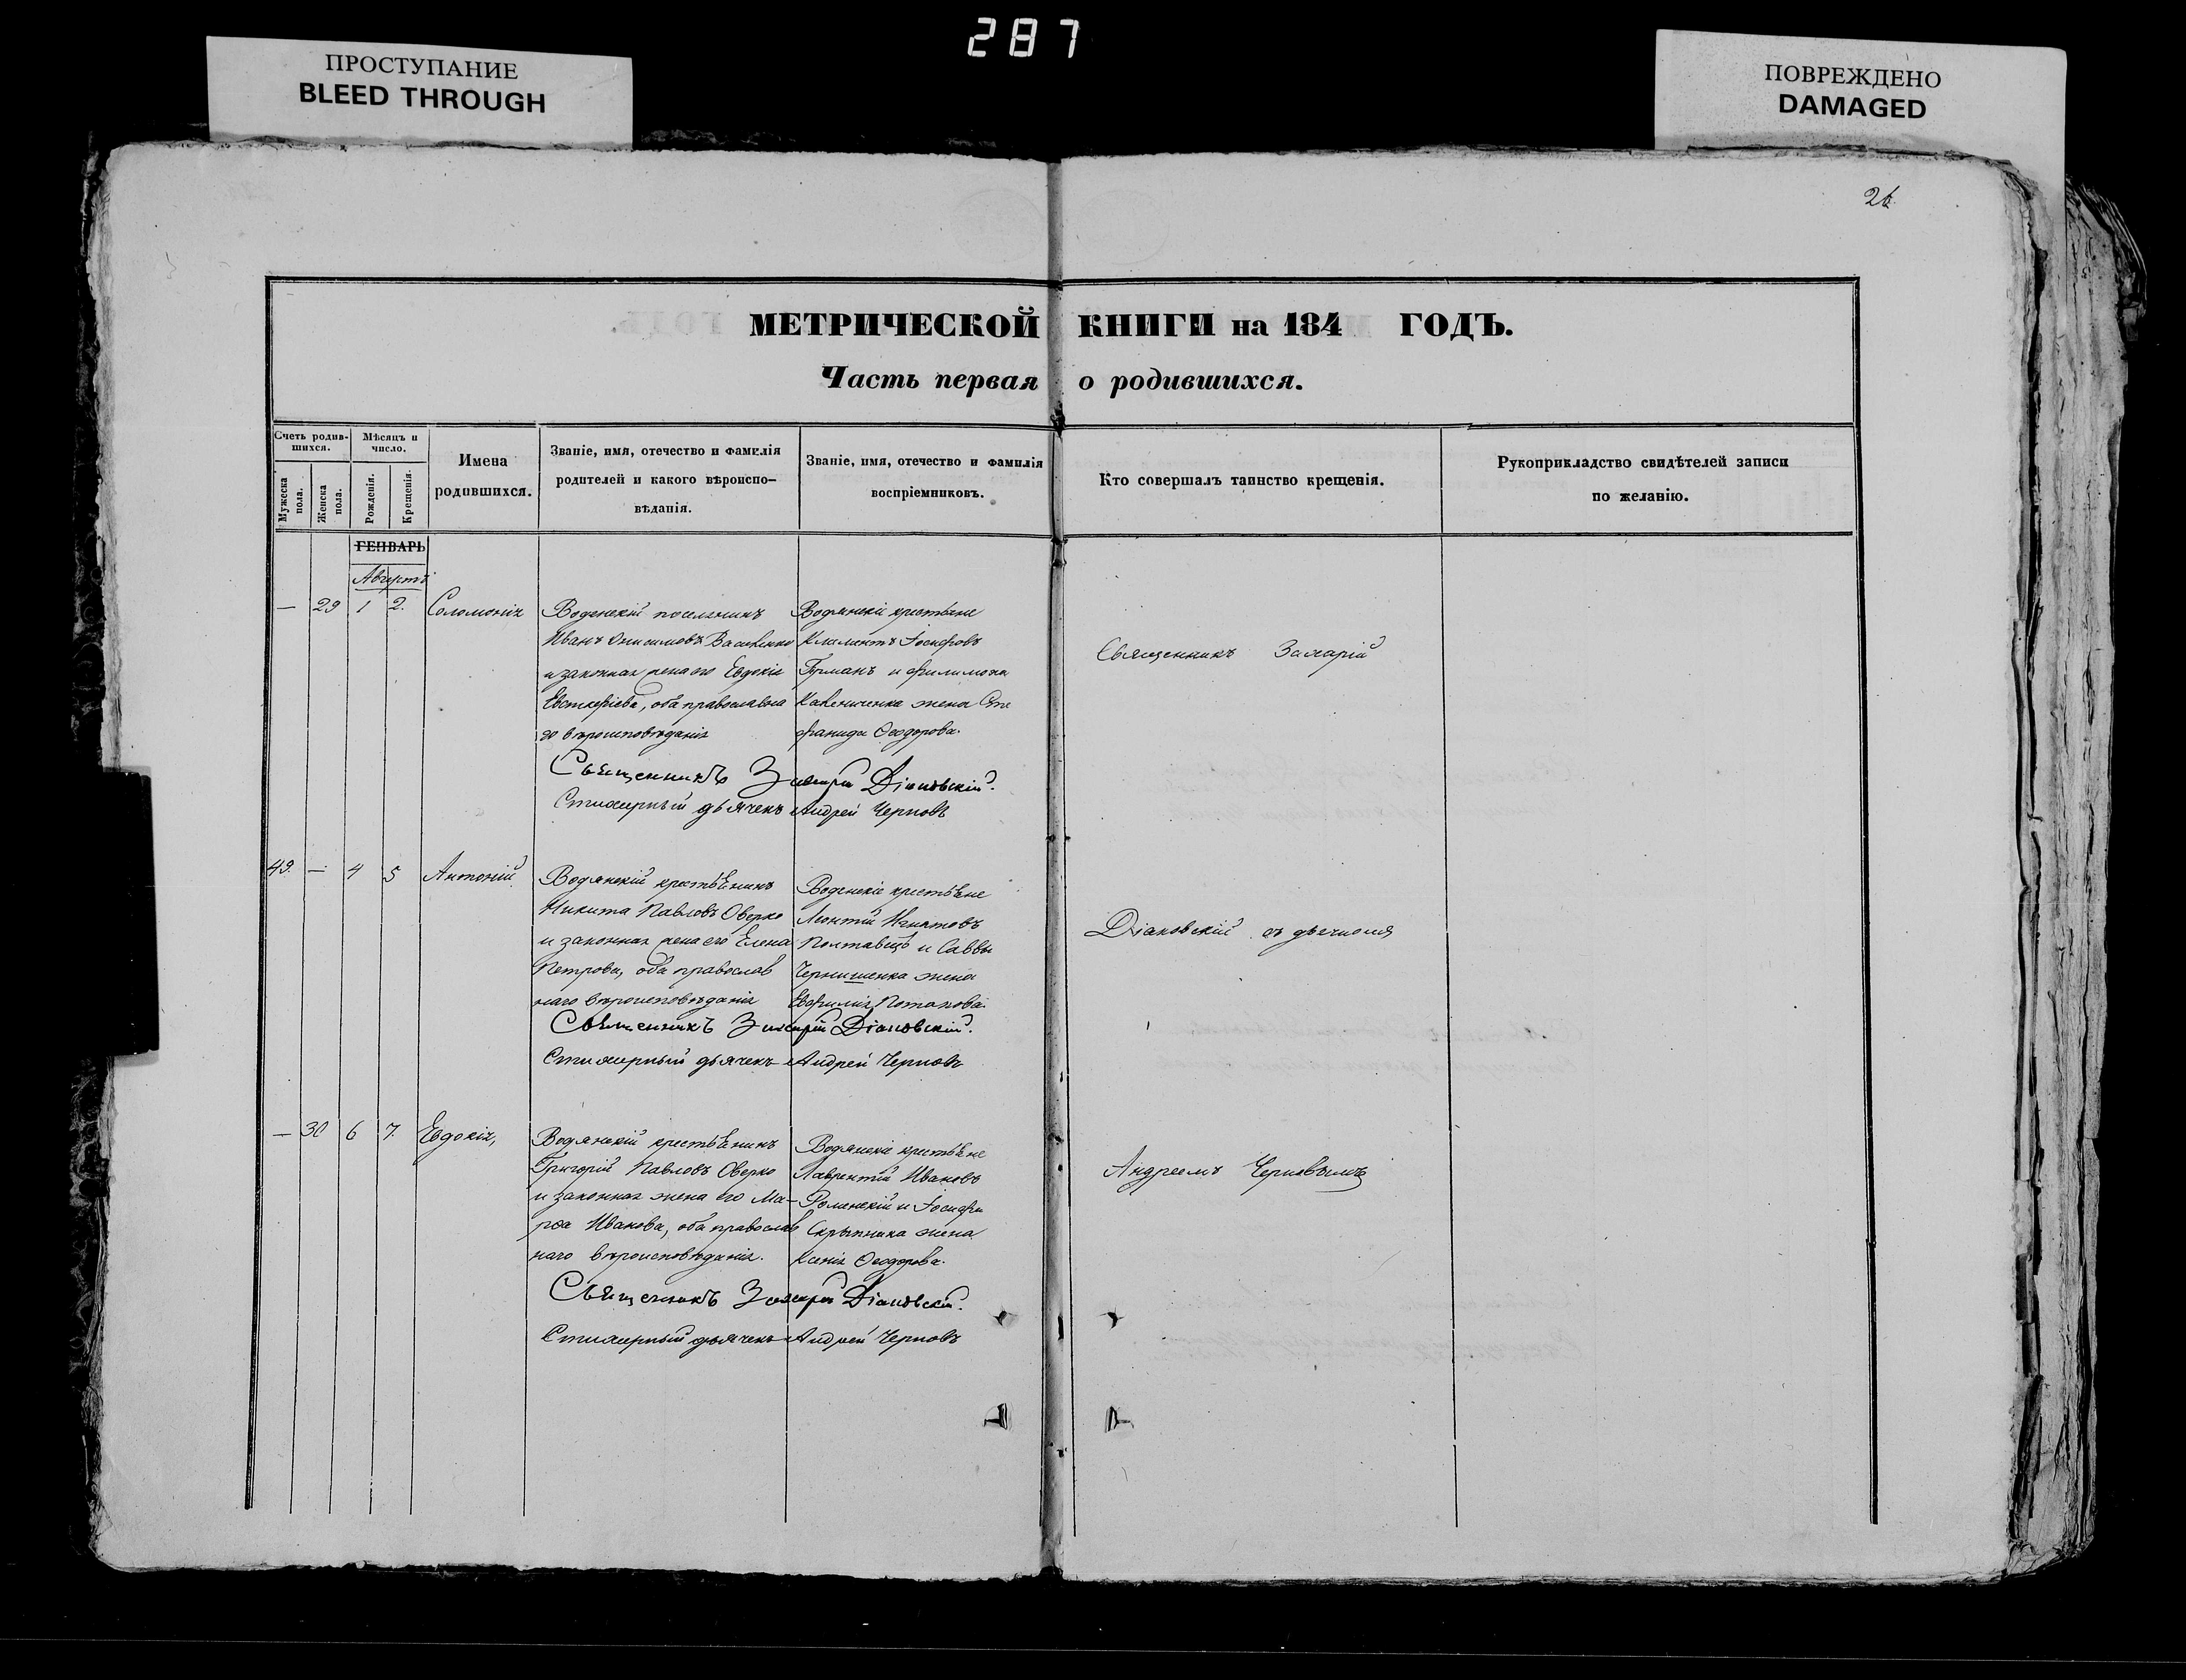 287
ПРОСТУПАНИЕ
BLEED THROUGH
ПОВРЕЖДЕНО
DAMAGED
26.
МЕТРИЧЕСКОЙ КНИГИ на 184 ГОДЪ.
Часть первая о родившихся.
Счетъ родив-
шихся.
Мѣсяцъ и
число.
Мужеска
пола.
Женска
пола.
Рожденія.
Крещенія.
Имена
родившихся.
Званіе, имя, отечество и фамилія
родителей и какого вѣроиспо-
вѣданія.
Званіе, имя, отечество и фамилія
воспріемниковъ.
Кто совершалъ таинство крещенія.
Рукоприкладство свидѣтелей записи
по желанію.
ГЕНВАРЬ
Августъ
— 29 1 2. Соломонія
Воденскій поселянинъ
Иванъ Онисимовъ
и законная жена его Евдокія
Евстафіева, оба православна
го вѣроисповѣданія
Водянскіе крестьяне
Климентъ Іосифовъ
Германъ и Филимона
жена Сте
фанида Ѳеодорова.
Священникъ Захарій Діаковскій.
Стихарный дьячекъ Андрей Черновъ
Священникъ Захарій
49. — 4 5 Антоній
Водянскій крестьянинъ
Никита Павловъ Оверко
и законная жена его Елена
Петрова, оба православ
наго вѣроисповѣданія
Воденскіе крестьяне
Леонтій Игнатовъ
Полтавецъ и Саввы
Чернишенка жена
Евфимія Потапова.
Священникъ Захарій Діаковскій.
Стихарный дьячекъ Андрей Черновъ
Діаковскій съ дьячкомъ
— 30 6 7. Евдокія,
Водянскій крестьянинъ
Григорій Павловъ Оверко
и законная жена его Ма-
рѳа Иванова, оба православ
наго вѣроисповѣданія.
Водянскіе крестьяне
Лаврентій Ивановъ
Роменскій и Іосифа
Скрыпника жена
Ксенія Ѳеодорова.
Священникъ Захарій Діаковскій.
Стихарный дьячекъ Андрей Черновъ
Андреемъ Черновымъ